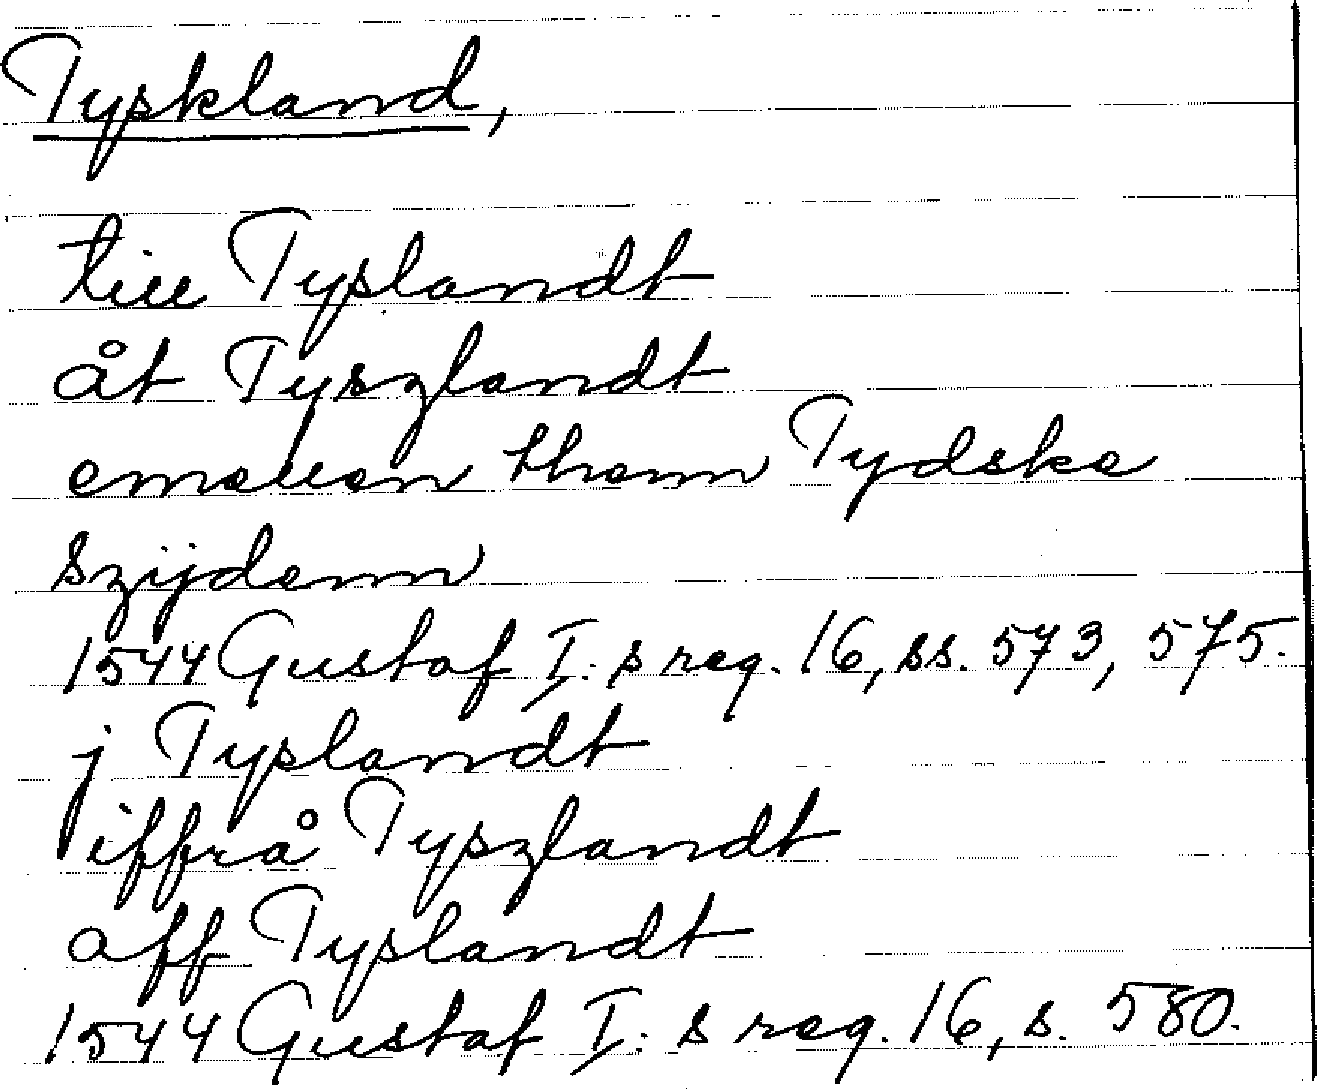 Tyskland,
till Tyslandt
åt Tyszlandt
emellan thenn Tydske
szijdenn
1544 Gustaf I:s reg. 16, ss. 573, 575.
j Tyslandt
iffrå Tyszlandt
aff Tyslandt
1544 Gustaf I:s reg. 16, s. 580.